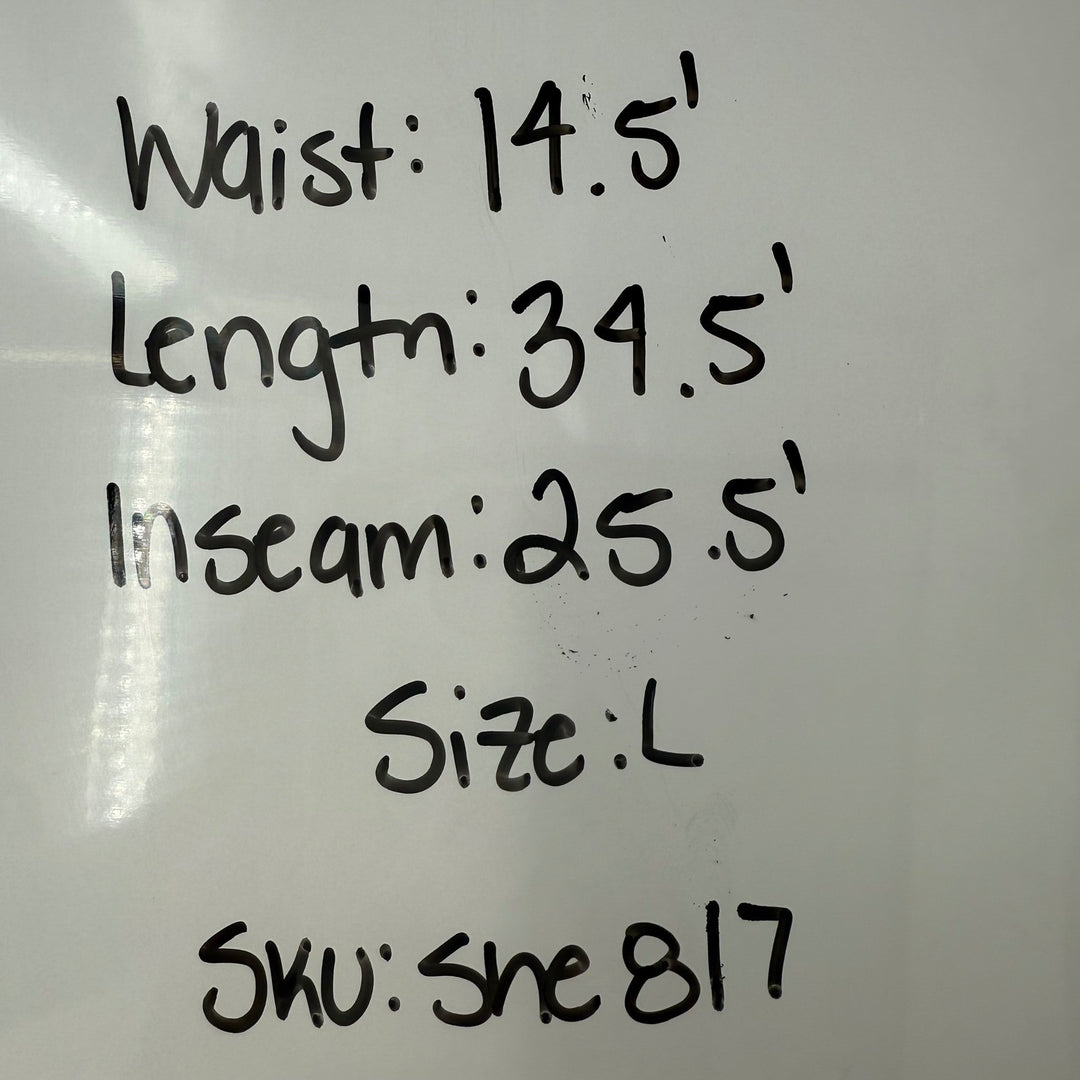 Waist: 14.5'
Length: 34.5'
Inseam: 25.5'
Size: L
SKU: She817